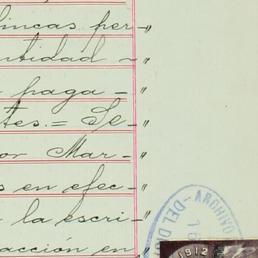 fincas per-"
ntidad -"
paga-"
tes.= Se-"
or Mar-"
s en efec-"
la escri-"
acción en
ARCHIVO
-DEL D
1912